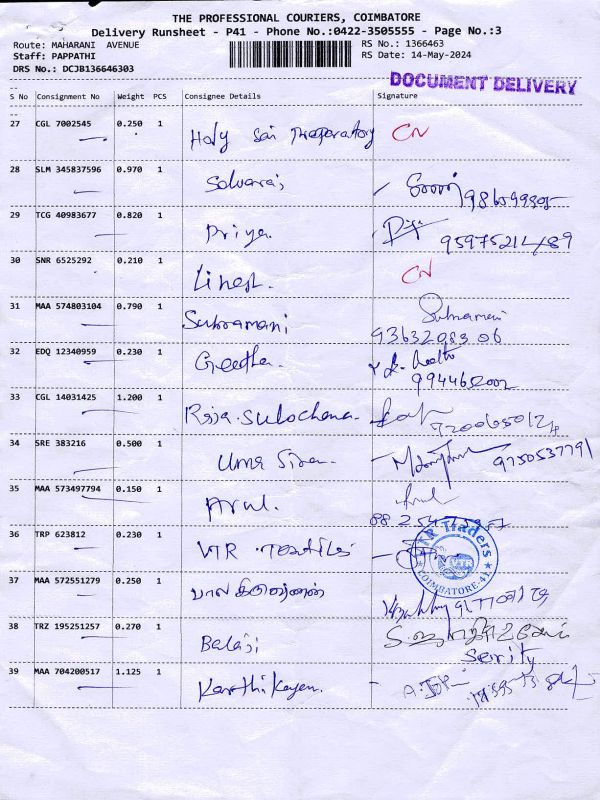 THE PROFESSIONAL COURIERS, COIMBATORE
Delivery Runsheet - P41 - Phone No.:0422-3505555 - Page No.:3
Route: MAHARANI AVENUE RS No.: 1366463
Staff: PAPPATHI RS Date: 14-May-2024
DRS No.: DCJB136646303
DOCUMENT DELIVERY
S No Consignment No Weight PCS Consignee Details Signature
27 CGL 7002545 0.250 1
Holy Sai CN
28 SLM 345837596 0.970 1
Selvaraj
29 TCG 40983677 0.820 1
Priya
30 SNR 6525292 0.210 1
Linesh. CN
31 MAA 574803104 0.790 1
Subramani Subramani
32 EDQ 12340959 0.230 1
Geetha.
33 CGL 14031425 1.200 1
Raja Sulochana
34 SRE 383216 0.500 1
Uma Siva 9750537791
35 MAA 573497794 0.150 1
Arul.
36 TRP 623812 0.230 1
VTR Textiles VTR Traders VTR COIMBATORE-41
37 MAA 572551279 0.250 1
38 TRZ 195251257 0.270 1
Balaji Serity
39 MAA 704200517 1.125 1
Karthikeyan.